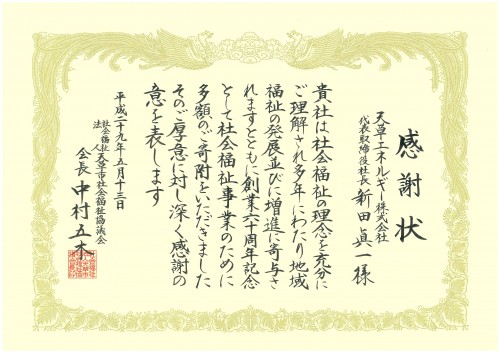 感謝状
天草エネルギー株式会社
代表取締役社長 新田眞一様
貴社は社会福祉の理念を充分に
ご理解され多年にわたり地域
福祉の発展並びに増進に寄与さ
れますとともに創業六十周年記念
として社会福祉事業のために
多額のご寄附をいただきました
そのご厚意に対し深く感謝の
意を表します
平成二十九年五月十三日
社会福祉法人 天草市社会福祉協議会
会長 中村五木